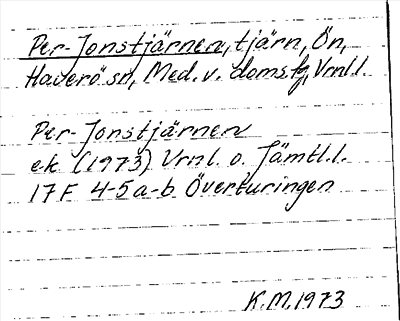 Per-Jonstjärnen, tjärn, Ön,
Haverö sn, Med. v. doms fg, Vrnl l.
Per-Jonstjärnen
ek (1973) Vrnl. o. Jämtl. l.
17F 4-5 a-b Överturingen
K.M. 1973